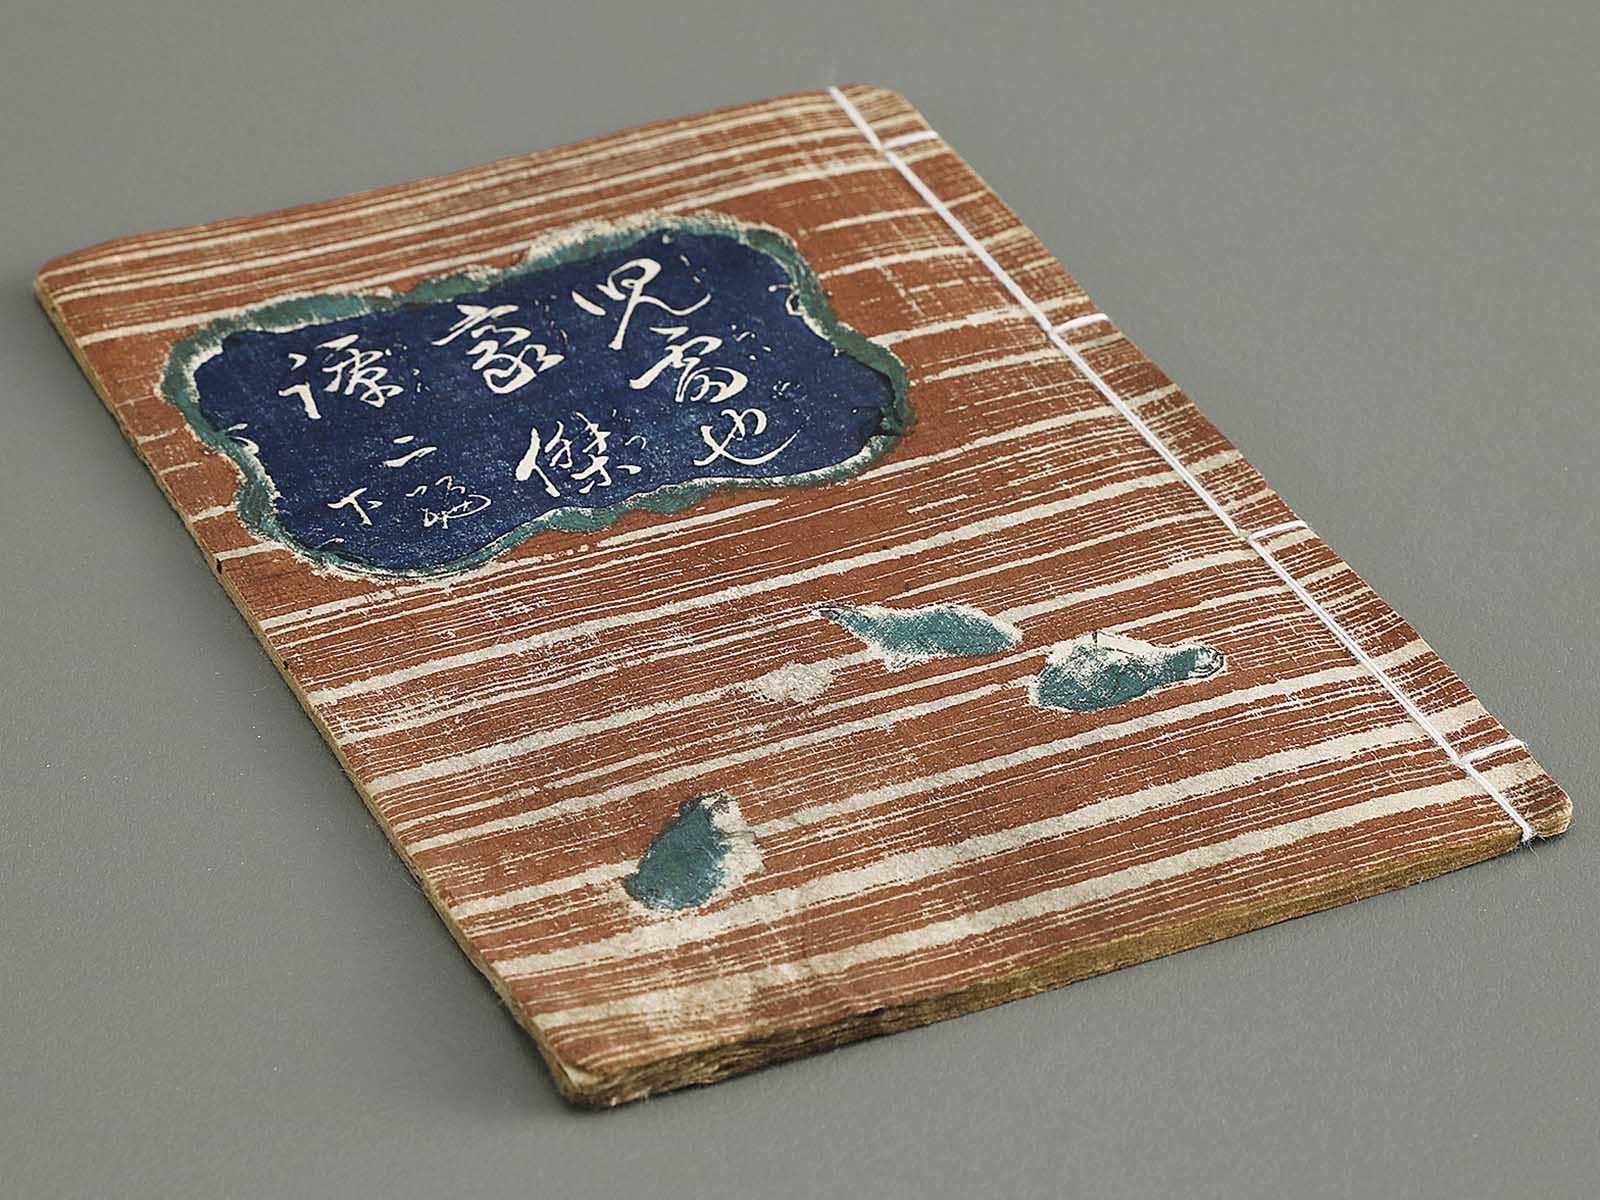 児雷也
豪傑
譚
二編
下